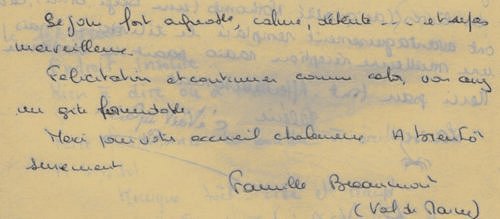 Séjour fort agréable, calme, détente... et repas
merveilleux.
Félicitation et continuer comme cela, vous avez
un gîte formidable.
Merci pour votre accueil chaleureux. A bientôt
surement
Famille Beaumont
(Val de Marne)